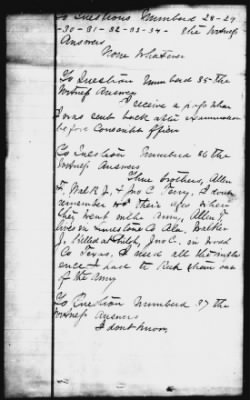 To Questions Numberd 28-29
-30-31-32-33-34- the Witness
Answers
None Whatever
To Question Numberd 35 the
Witness Answers
I receive a pass when
I was sent back after examination
before Conscript officer
To Question Numberd 36 the
Witness Answers
Three brothers, Allen
F. Walk J. & Jno C. Terry, I dont
remember their ages when
they went in the Army, Allen F.
lives in Limestone Co Ala, Walker
J. Killed at Shiloh, Jno C. in Wood
Co Texas, I used all the influ
ence I had to Keep them out
of the Army
To Question Numberd 37 the
Witness Answers
I dont know